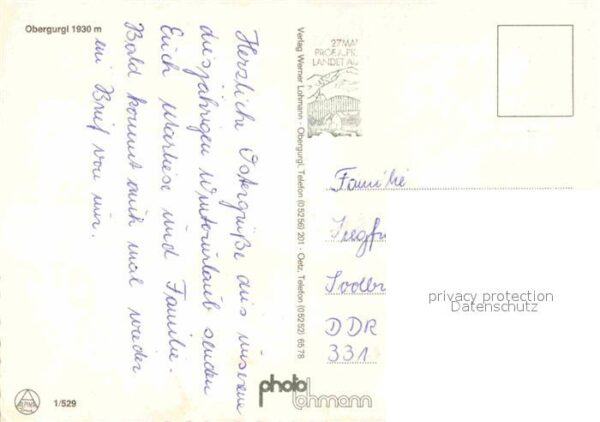 Obergurgl 1930 m
Herzliche Ostergrüße aus unserem
diesjährigen Winterurlaub senden
Euch Marlies und Familie.
Bald kommt auch mal wieder
ein Brief von mir.
Verlag Werner Lohmann - Obergurgl, Telefon (05256) 201 - Oetz, Telefon (05252) 6578
27MA
LANDET AU
Familie
DDR
331
privacy protection
Datenschutz
photo
lohmann
1/529